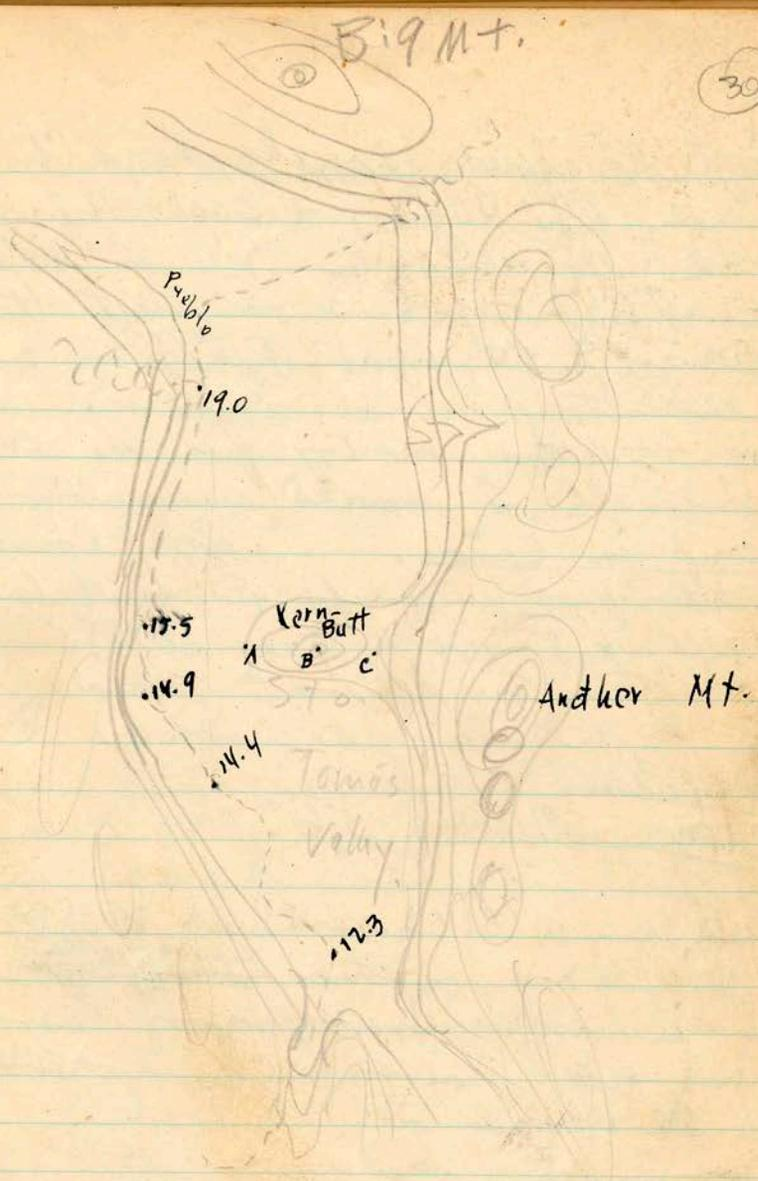 Big Mt.
30
Pueblo
19.0
15.5
Kern-
Butt
A
B
C
14.9
Another Mt.
14.4
Tomás
Valley
12.3